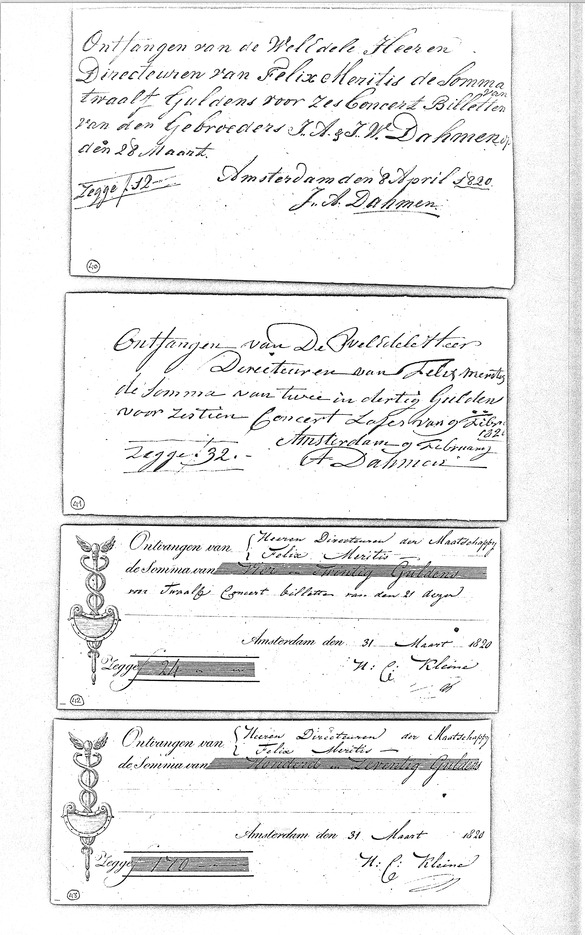 Ontfangen van de WelEdele Heeren
Directeuren van Felix Meritis de Somma van
twaalf Guldens voor Zes Concert Billetten
van den Gebroeders J. A. & J. W. Dahmen
den 28 Maart.
Amsterdam den 8 April 1820
Zegge f 12 —
J. A. Dahmen
40
Ontfangen van De WelEdele Heer
Directeuren van Felix Meritis
de Somma van twee in dertig Gulden
voor Zestien Concert van 9 Febr
182
Amsterdam 9 February
Zegge f 32. -
A Dahmen
41
Ontvangen van Heeren Directeuren der Maatschappy
Felix Meritis —
de Somma van Vier en Twintig Guldens
voor Twaalf Concert billetten van den 21 dezer
Amsterdam den 31 Maart 1820
Zegge f 24 —
H: C: Kleine
42
Ontvangen van Heeren Directeuren der Maatschappy
Felix Meritis —
de Somma van Honderd en Zeventig Guldens
Amsterdam den 31 Maart 1820
Zegge f 170
H: C: Kleine
43